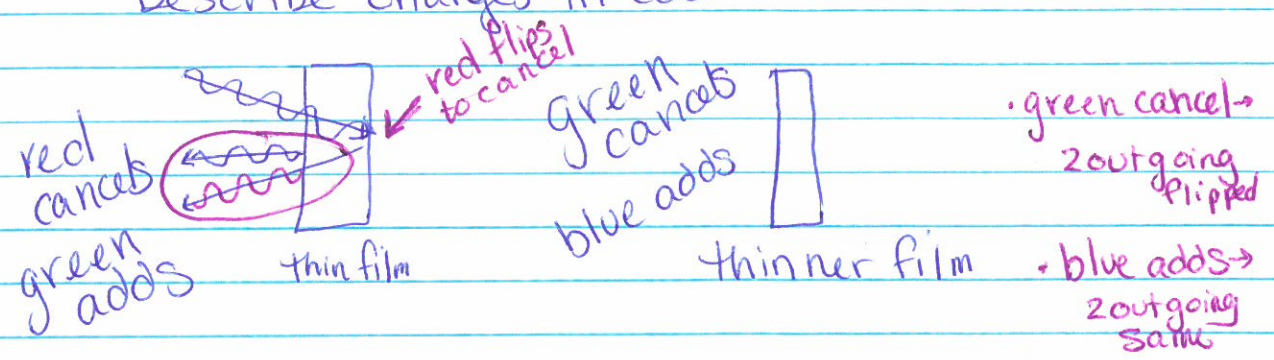 Describe changes in
red flips
to cancel
red
cancels
green
adds
thin film
green
cancels
blue adds
thinner film
• green cancel→
2 outgoing
flipped
• blue adds→
2 outgoing
same